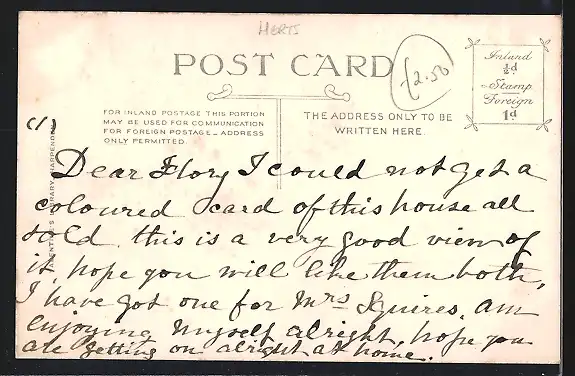 HERTS
POST CARD
£2.50
Inland
½d
Stamp
Foreign
1d
FOR INLAND POSTAGE THIS PORTION
MAY BE USED FOR COMMUNICATION
FOR FOREIGN POSTAGE_ADDRESS
ONLY PERMITTED.
THE ADDRESS ONLY TO BE
WRITTEN HERE.
LIBRARY, HARPENDEN
Dear Flory I could not get a
coloured card of this house all
sold. this is a very good view of
it, hope you will like them both,
I have got one for Mrs Squires. am
enjoying myself alright, hope you
are getting on alright at home.